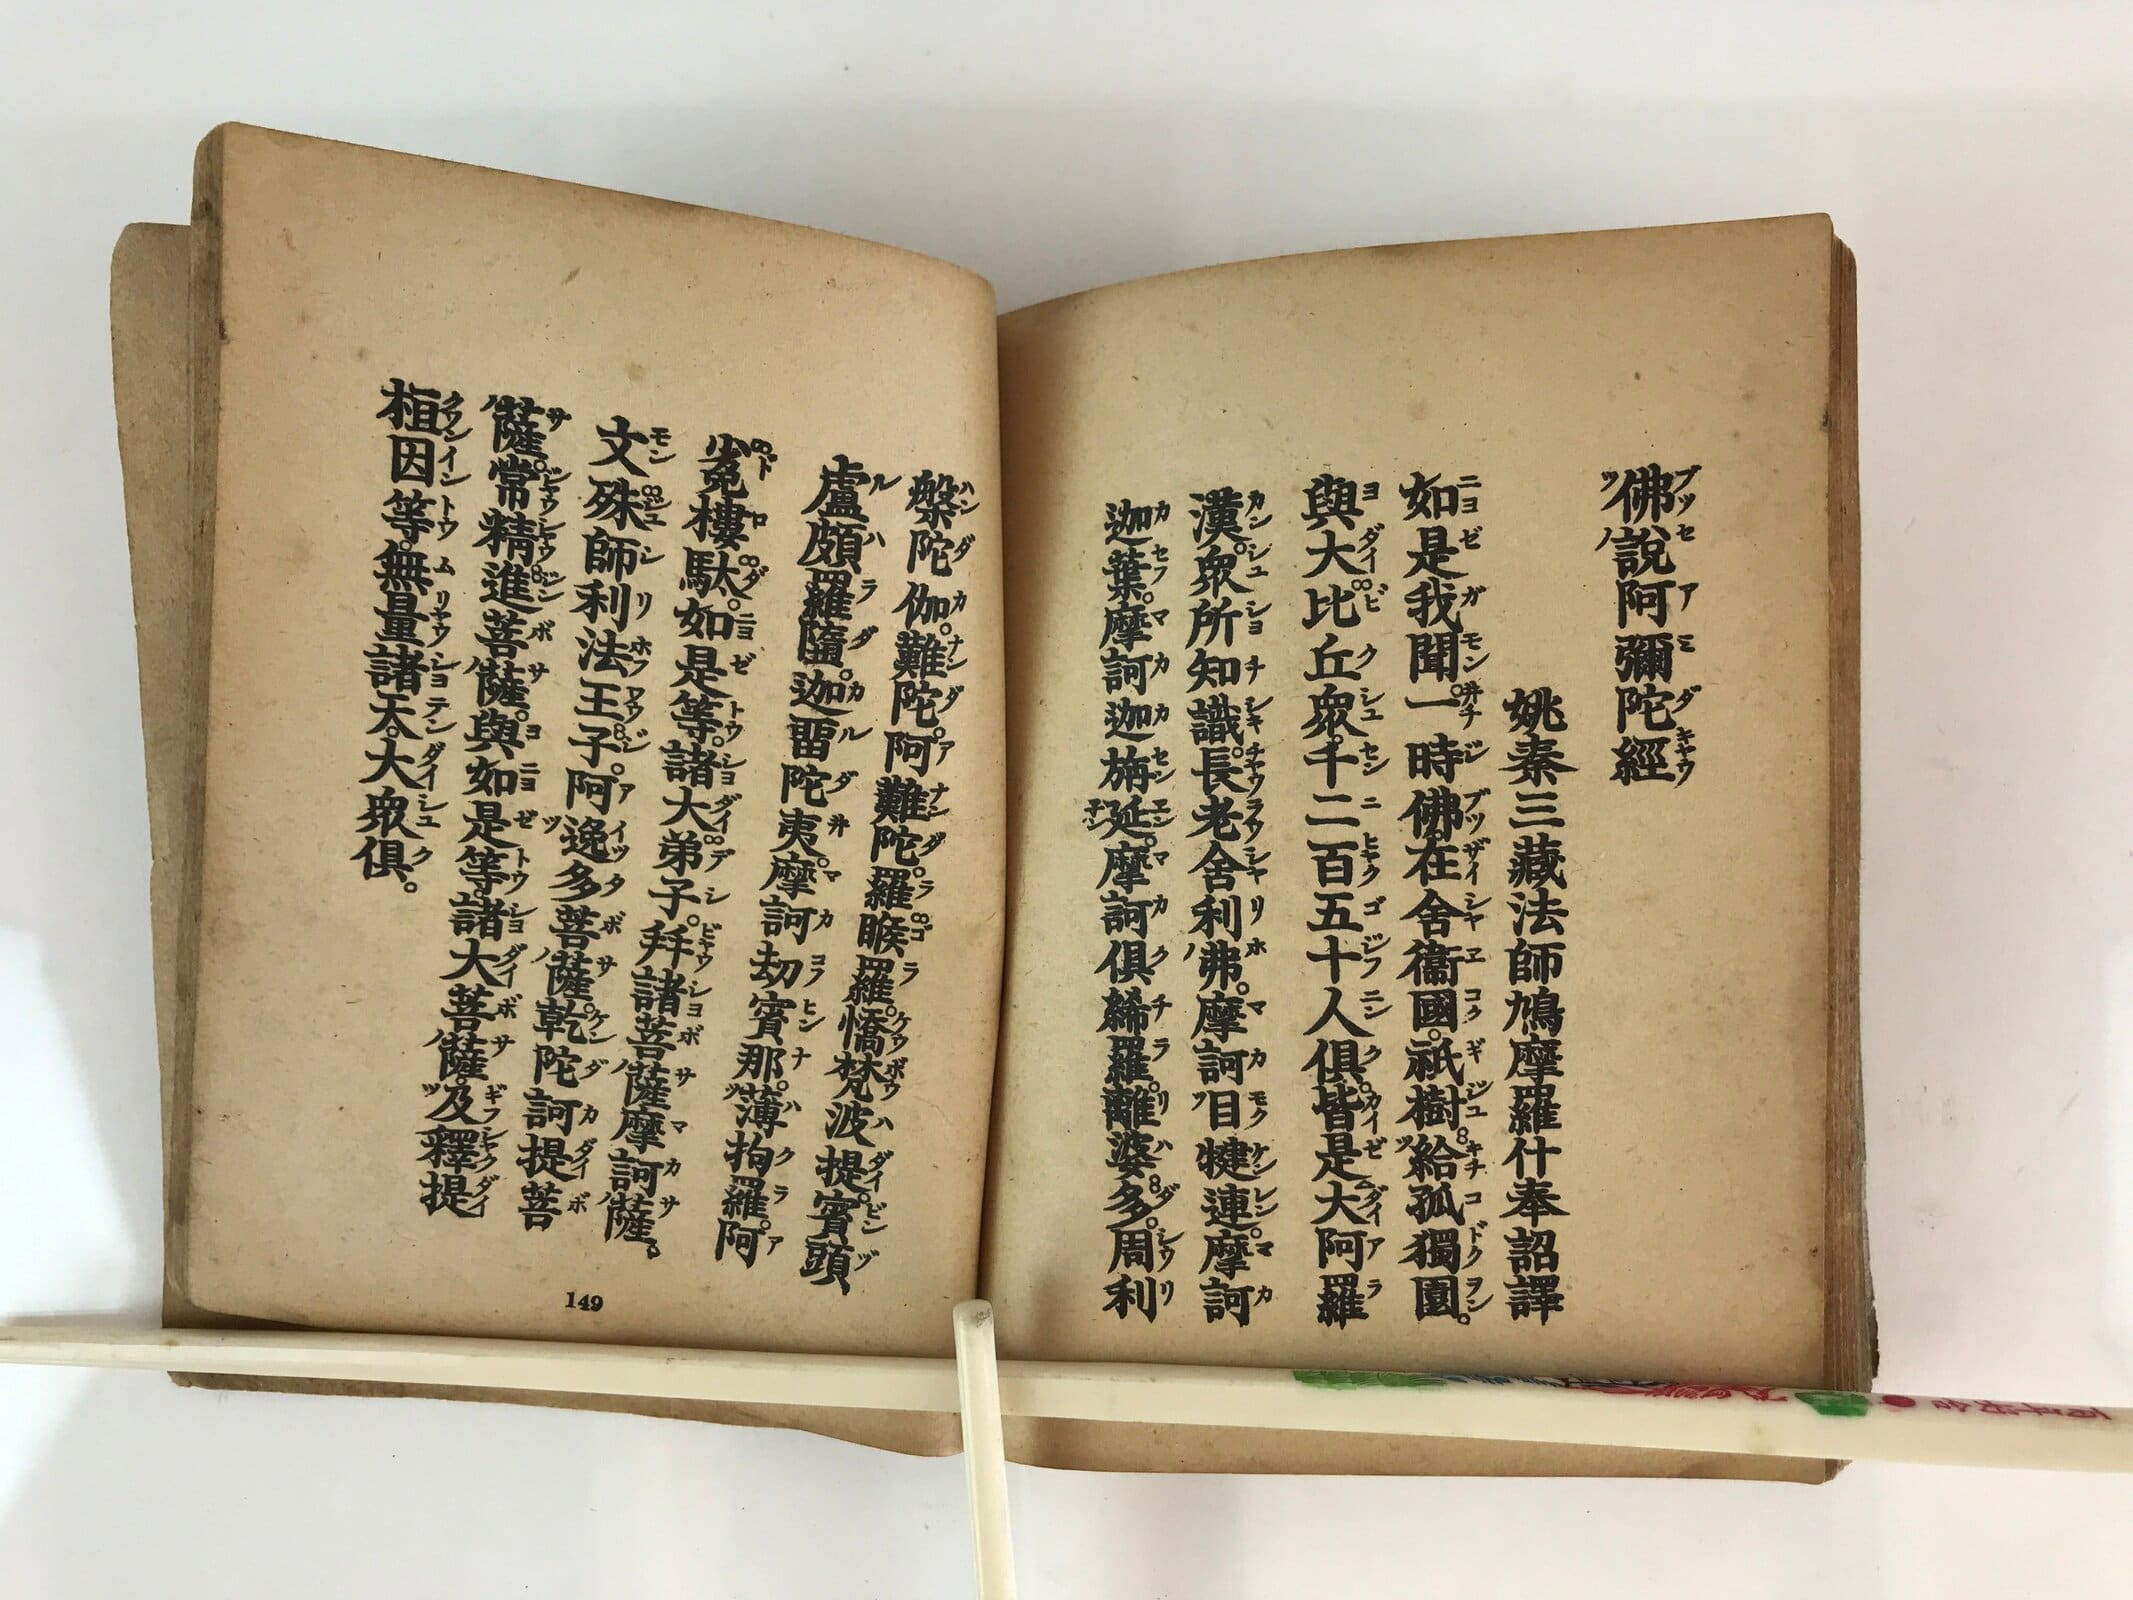 佛說阿彌陀經
姚秦三藏法師鳩摩羅什奉詔譯
如是我聞。一時佛。在舍衞國。祇樹給孤獨園。
與大比丘衆。千二百五十人俱。皆是大阿羅
漢。衆所知識。長老舍利弗。摩訶目犍連。摩訶
迦葉。摩訶迦旃延。摩訶俱絺羅。離婆多。周利
槃陀伽。難陀。阿難陀。羅睺羅。憍梵波提。賓頭
盧頗羅墮。迦留陀夷。摩訶劫賓那。薄拘羅。阿
㝹樓馱。如是等。諸大弟子。幷諸菩薩摩訶薩。
文殊師利法王子。阿逸多菩薩。乾陀訶提菩
薩。常精進菩薩。與如是等。諸大菩薩。及釋提
桓因等。無量諸天。大衆俱。
149